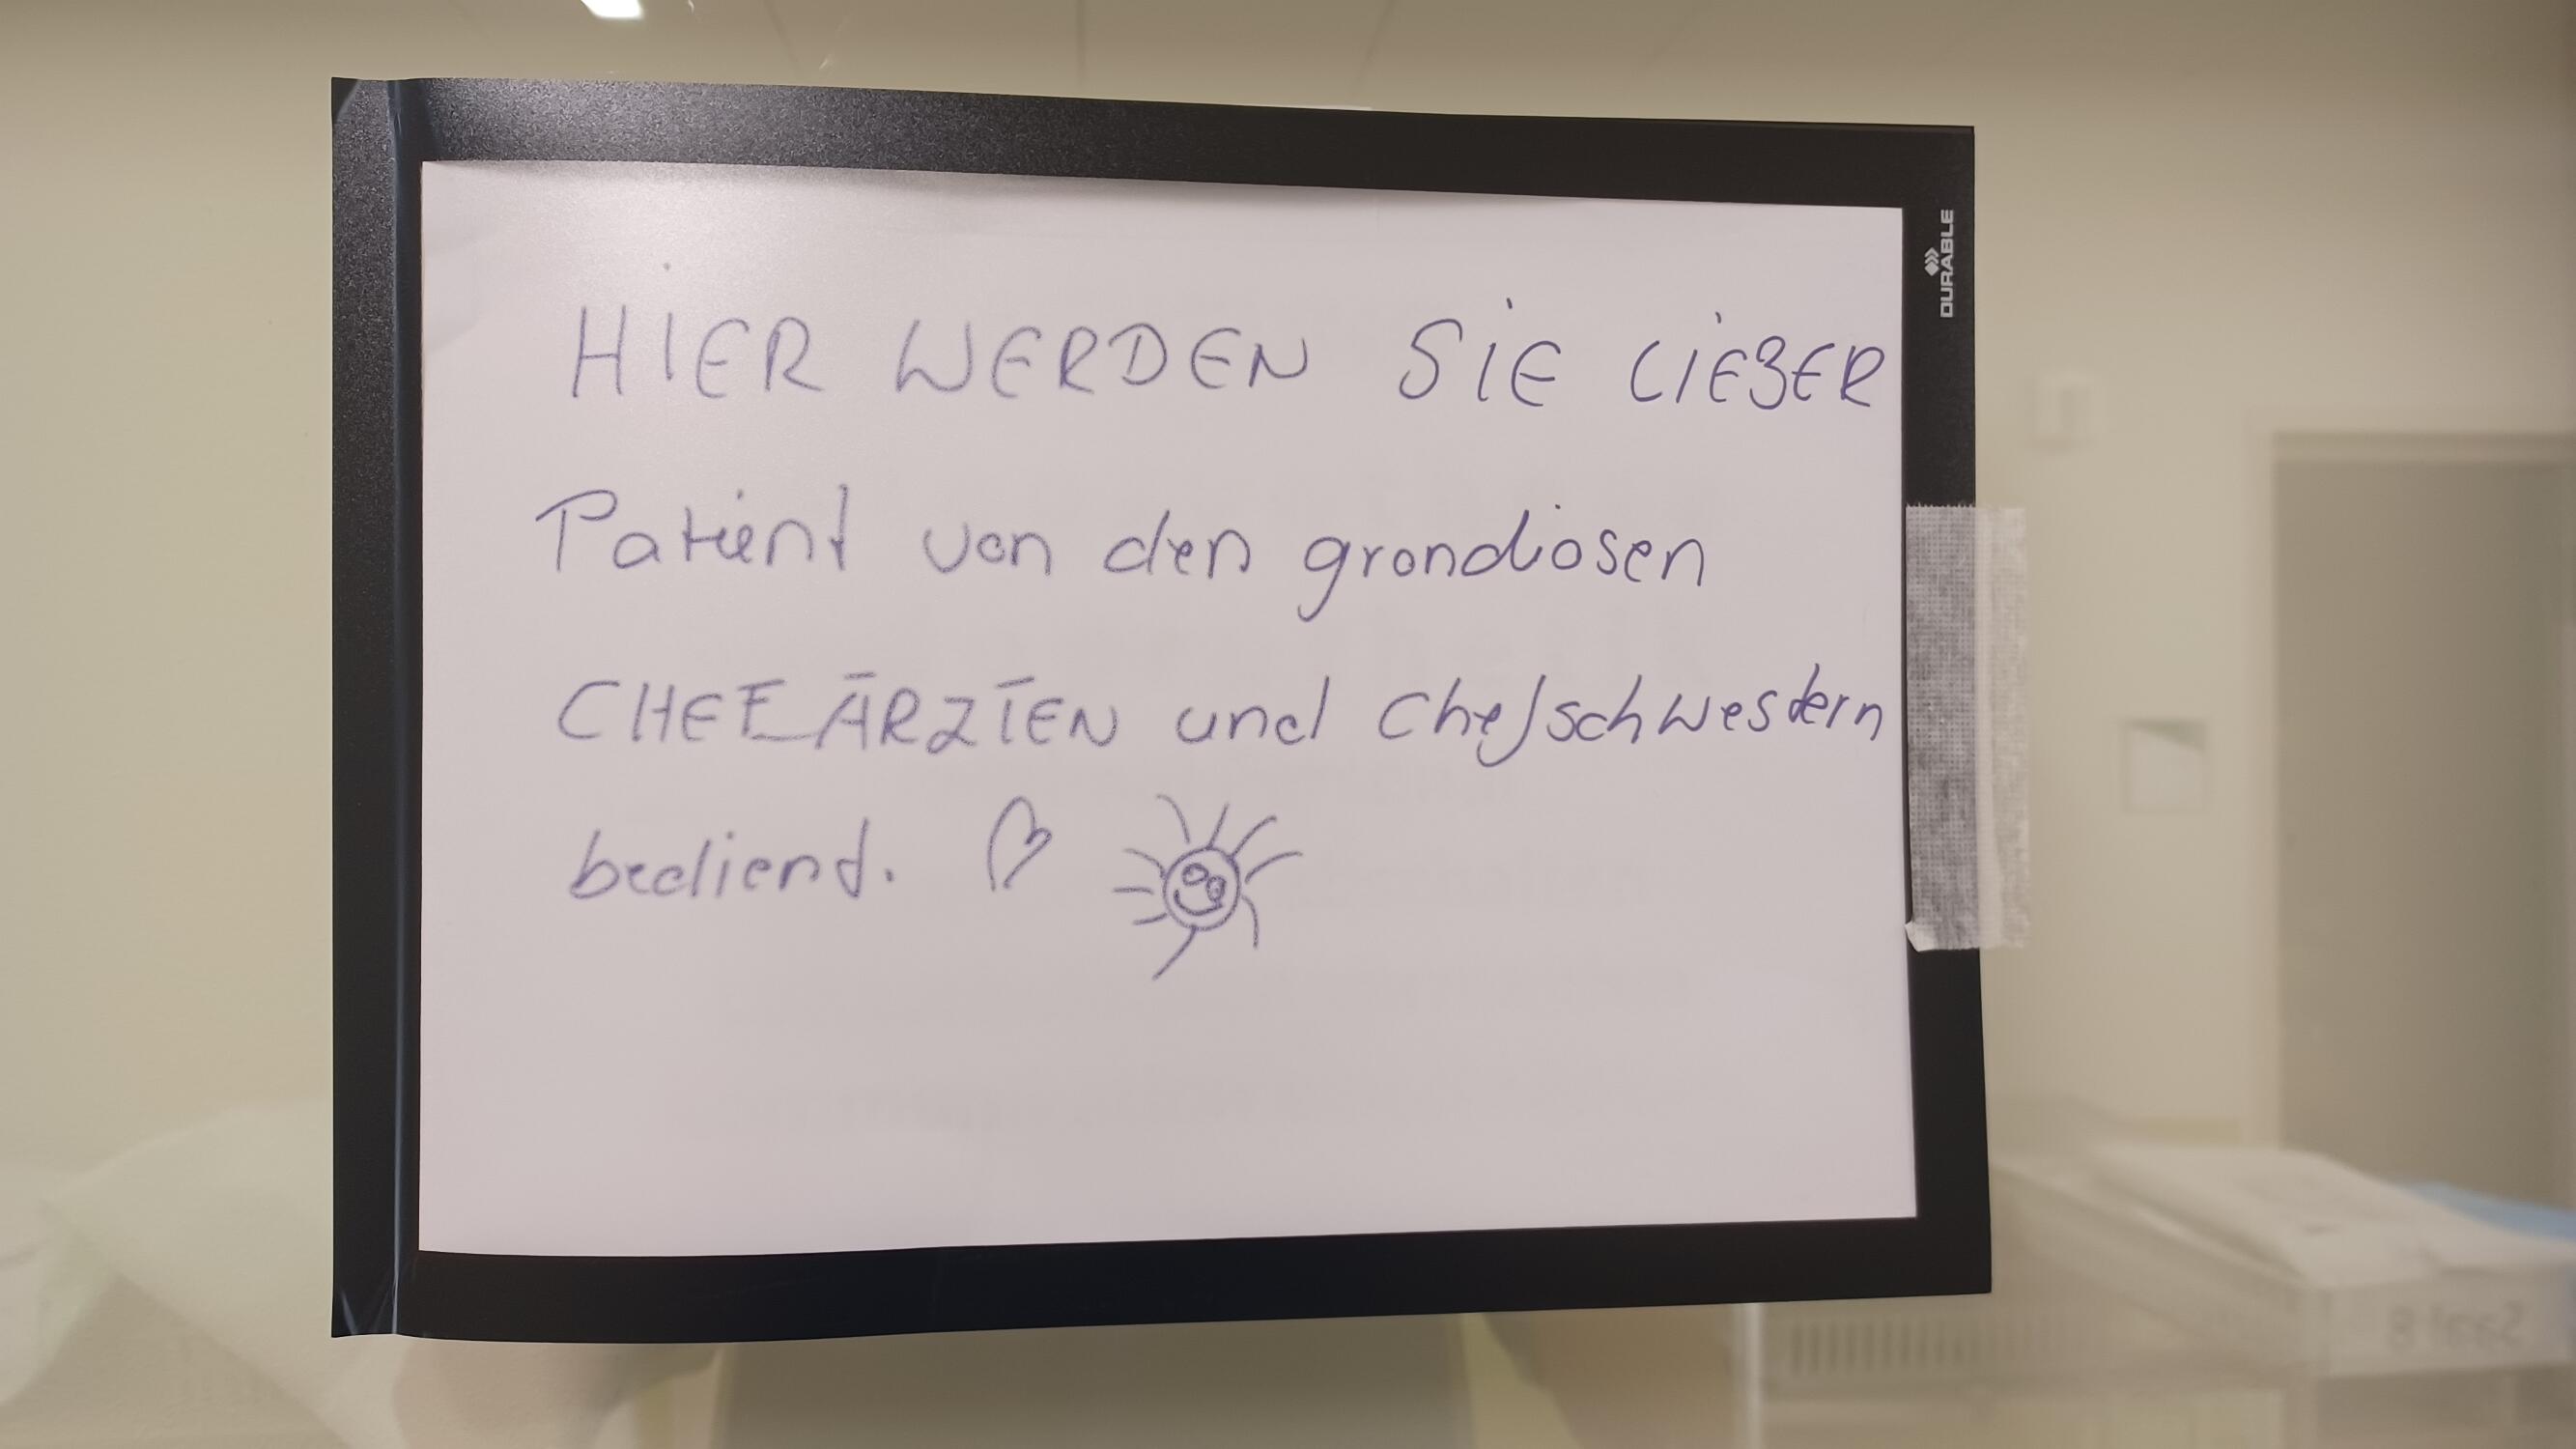 HIER WERDEN SIE LIEBER
Patient von den grandiosen
CHEFÄRZTEN und Chefschwestern
bedient.
DURABLE
Saal 8